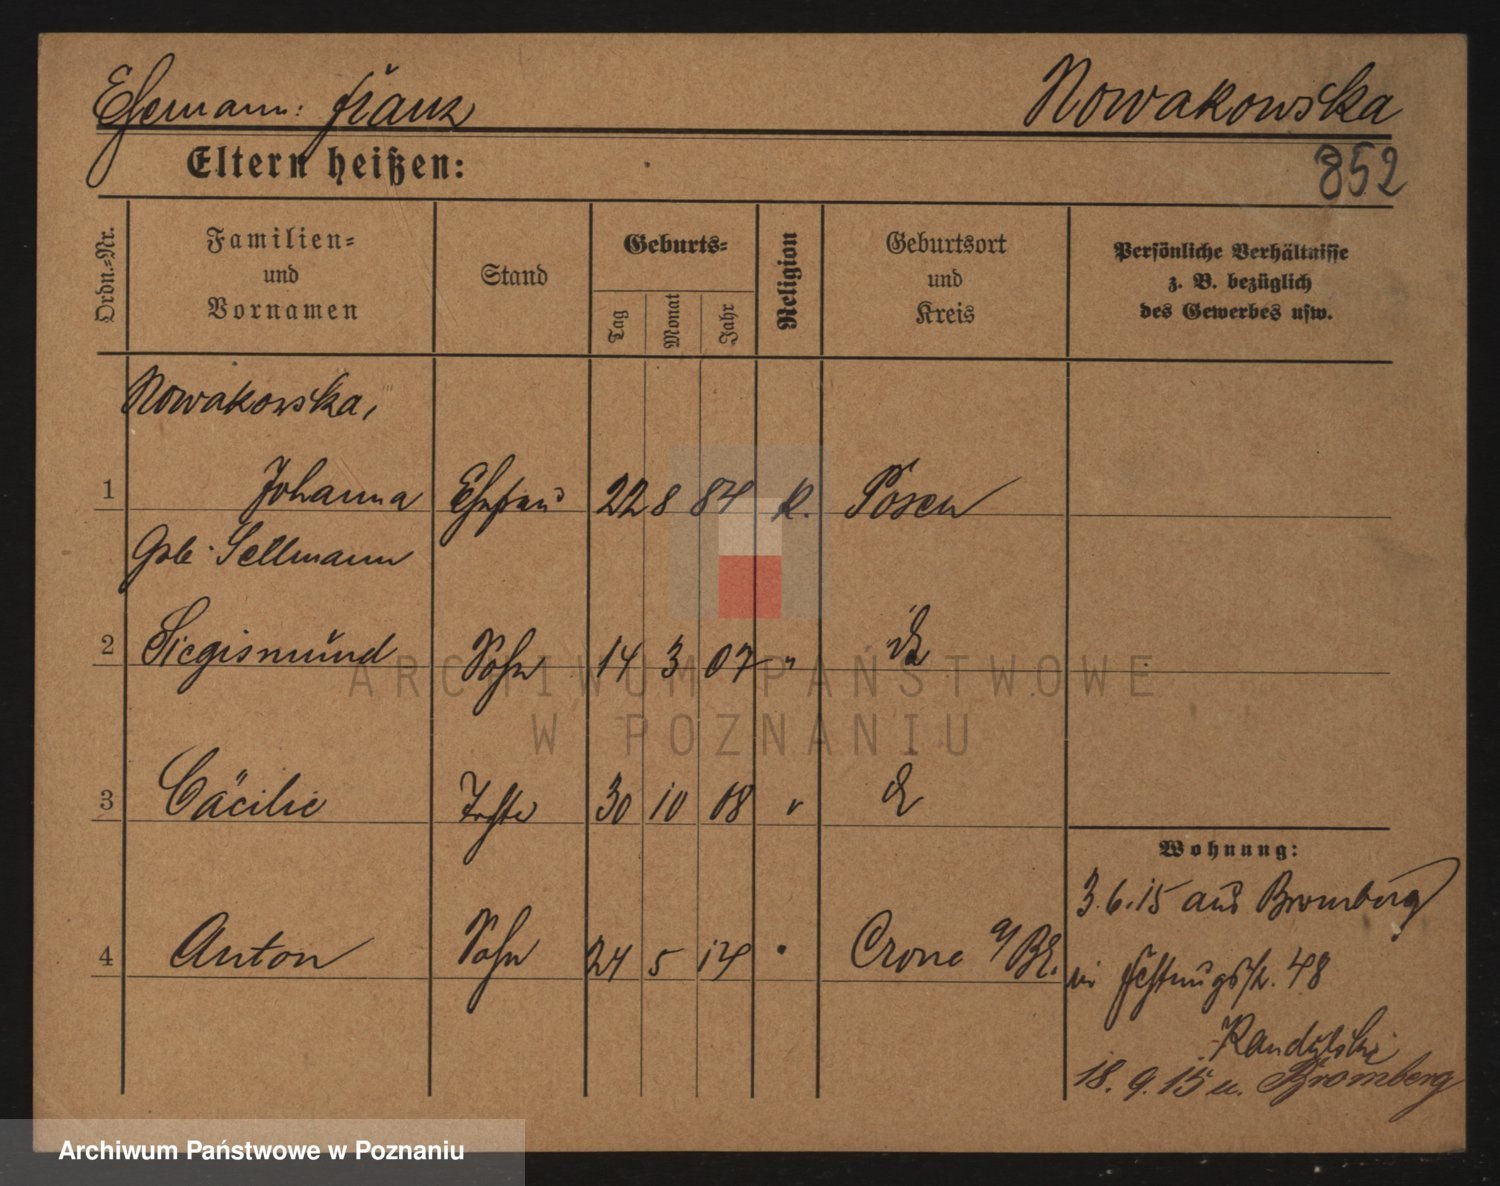 Ehemann: Franz Nowakowska
852
Eltern heißen:
Ordn.=Nr.
Familien=
und
Vornamen
Stand
Geburts=
Tag Monat Jahr
Religion
Geburtsort
und
Kreis
Persönliche Verhältnisse
z. B. bezüglich
des Gewerbes usw.
Nowakowska,
1 Johanna Ehefrau 22 8 84 K. Posen
Geb. Sellmann
2 Siegismund Sohn 14 3 07 "
3 Cäcilie 30 10 08
Wohnung:
3.6.15 aus Bromberg
4 Anton Sohn 24 5 14 Crone a/Br.
in Festungsstr. 48
18. 9. 15 n. Bromberg
ARCHIWUM PAŃSTWOWE
W POZNANIU
Archiwum Państwowe w Poznaniu